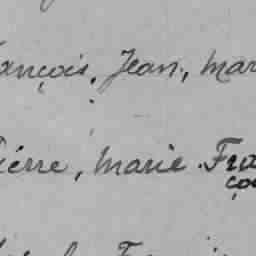 ançois, Jean, mar
ierre, marie Fra
ço